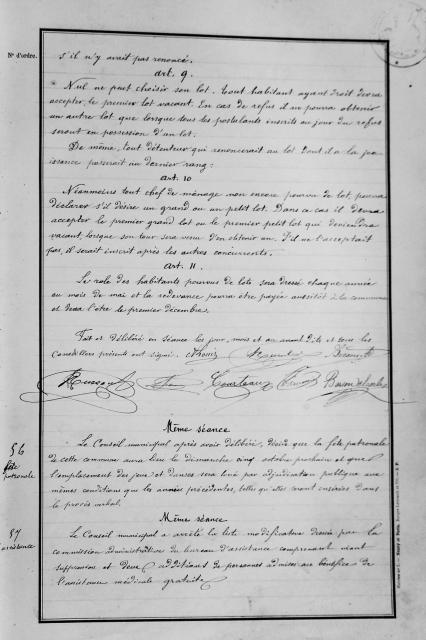 N° d'ordre.
s'il n'y avait pas renoncé.
art. 9.
Nul ne peut choisir son lot. Tout habitant ayant droit devra
accepter le premier lot vacant. En cas de refus il ne pourra obtenir
un autre lot que lorsque tous les postulants inscrits au jour du refus
seront en possession d'un lot.
De même, tout détenteur qui renoncerait au lot dont il a la jou
issance passerait au dernier rang.
art. 10
Néanmoins tout chef de ménage non encore pourvu de lot, pourra
déclarer s'il désire un grand ou un petit lot. Dans ce cas il devra
accepter le premier grand lot ou le premier petit lot qui deviendra
vacant, lorsque son tour sera venu d'en obtenir un. S'il ne l'acceptait
pas, il serait inscrit après les autres concurrents.
art. 11.
Le rôle des habitants pourvus de lots sera dressé chaque année
au mois de mai et la redevance pourra être payée aussitôt à la commune
et devra l'être le premier décembre.
Fait et délibéré en séance les jour, mois et an avant dits et tous les
Conseillers présents ont signé.
Courteaux
Même séance
56
fête
patronale
Le Conseil municipal après avoir délibéré, décide que la fête patronale
de cette commune aura lieu le dimanche cinq octobre prochain et que
l'emplacement des jeux et danses sera loué par adjudication publique aux
mêmes conditions que les années précédentes, telles qu'elles seront insérées dans
le procès verbal.
Même séance
57
assistance
Le Conseil municipal a arrêté la liste modificative dressée par la
commission administrative du bureau d'assistance comprenant
suppression et deux additions de personnes admises au bénéfice de
l'assistance médicale gratuite.